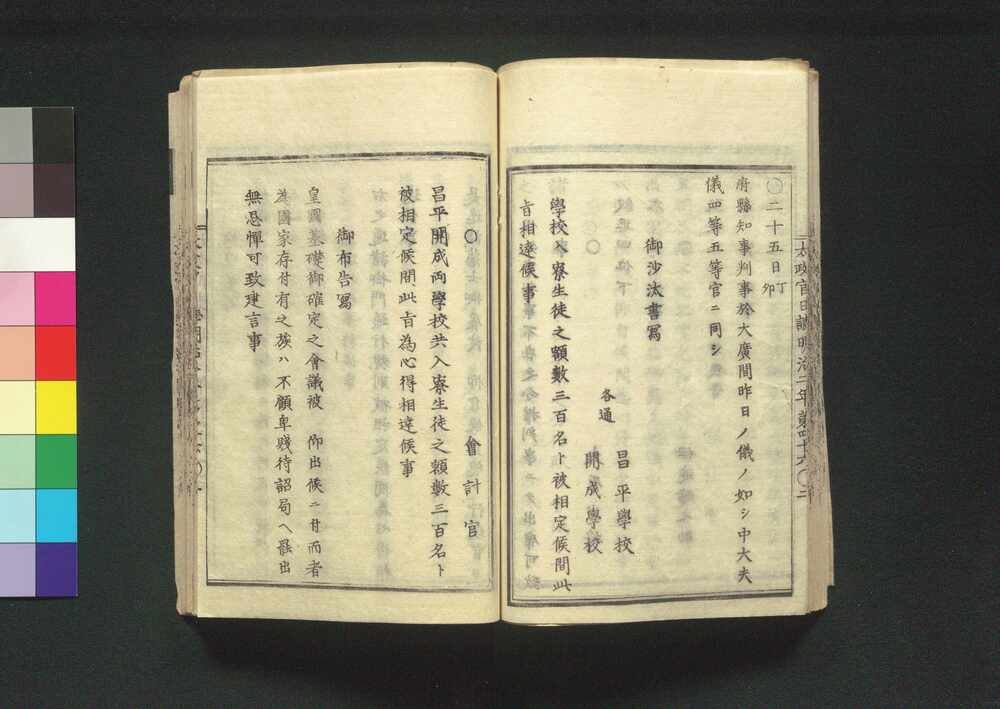 太政官日誌明治二年 第四十六 〇 二
〇二十五日丁卯
府縣知事判事於大廣間昨日ノ儀ノ如シ中大夫
儀四等五等官ニ同シ
御沙汰書寫
昌平學校
各通
開成學校
學校入寮生徒之額數三百名ト被相定候間此
旨相達候事
〇
會計官
昌平開成両學校共入寮生徒之額數三百名ト
被相定候間此旨為心得相達候事
御布告寫
皇國基礎御確定之會議被 仰出候ニ付而者
為國家存付有之族ハ不顧卑賤待詔局ヘ罷出
無忌憚可致建言事